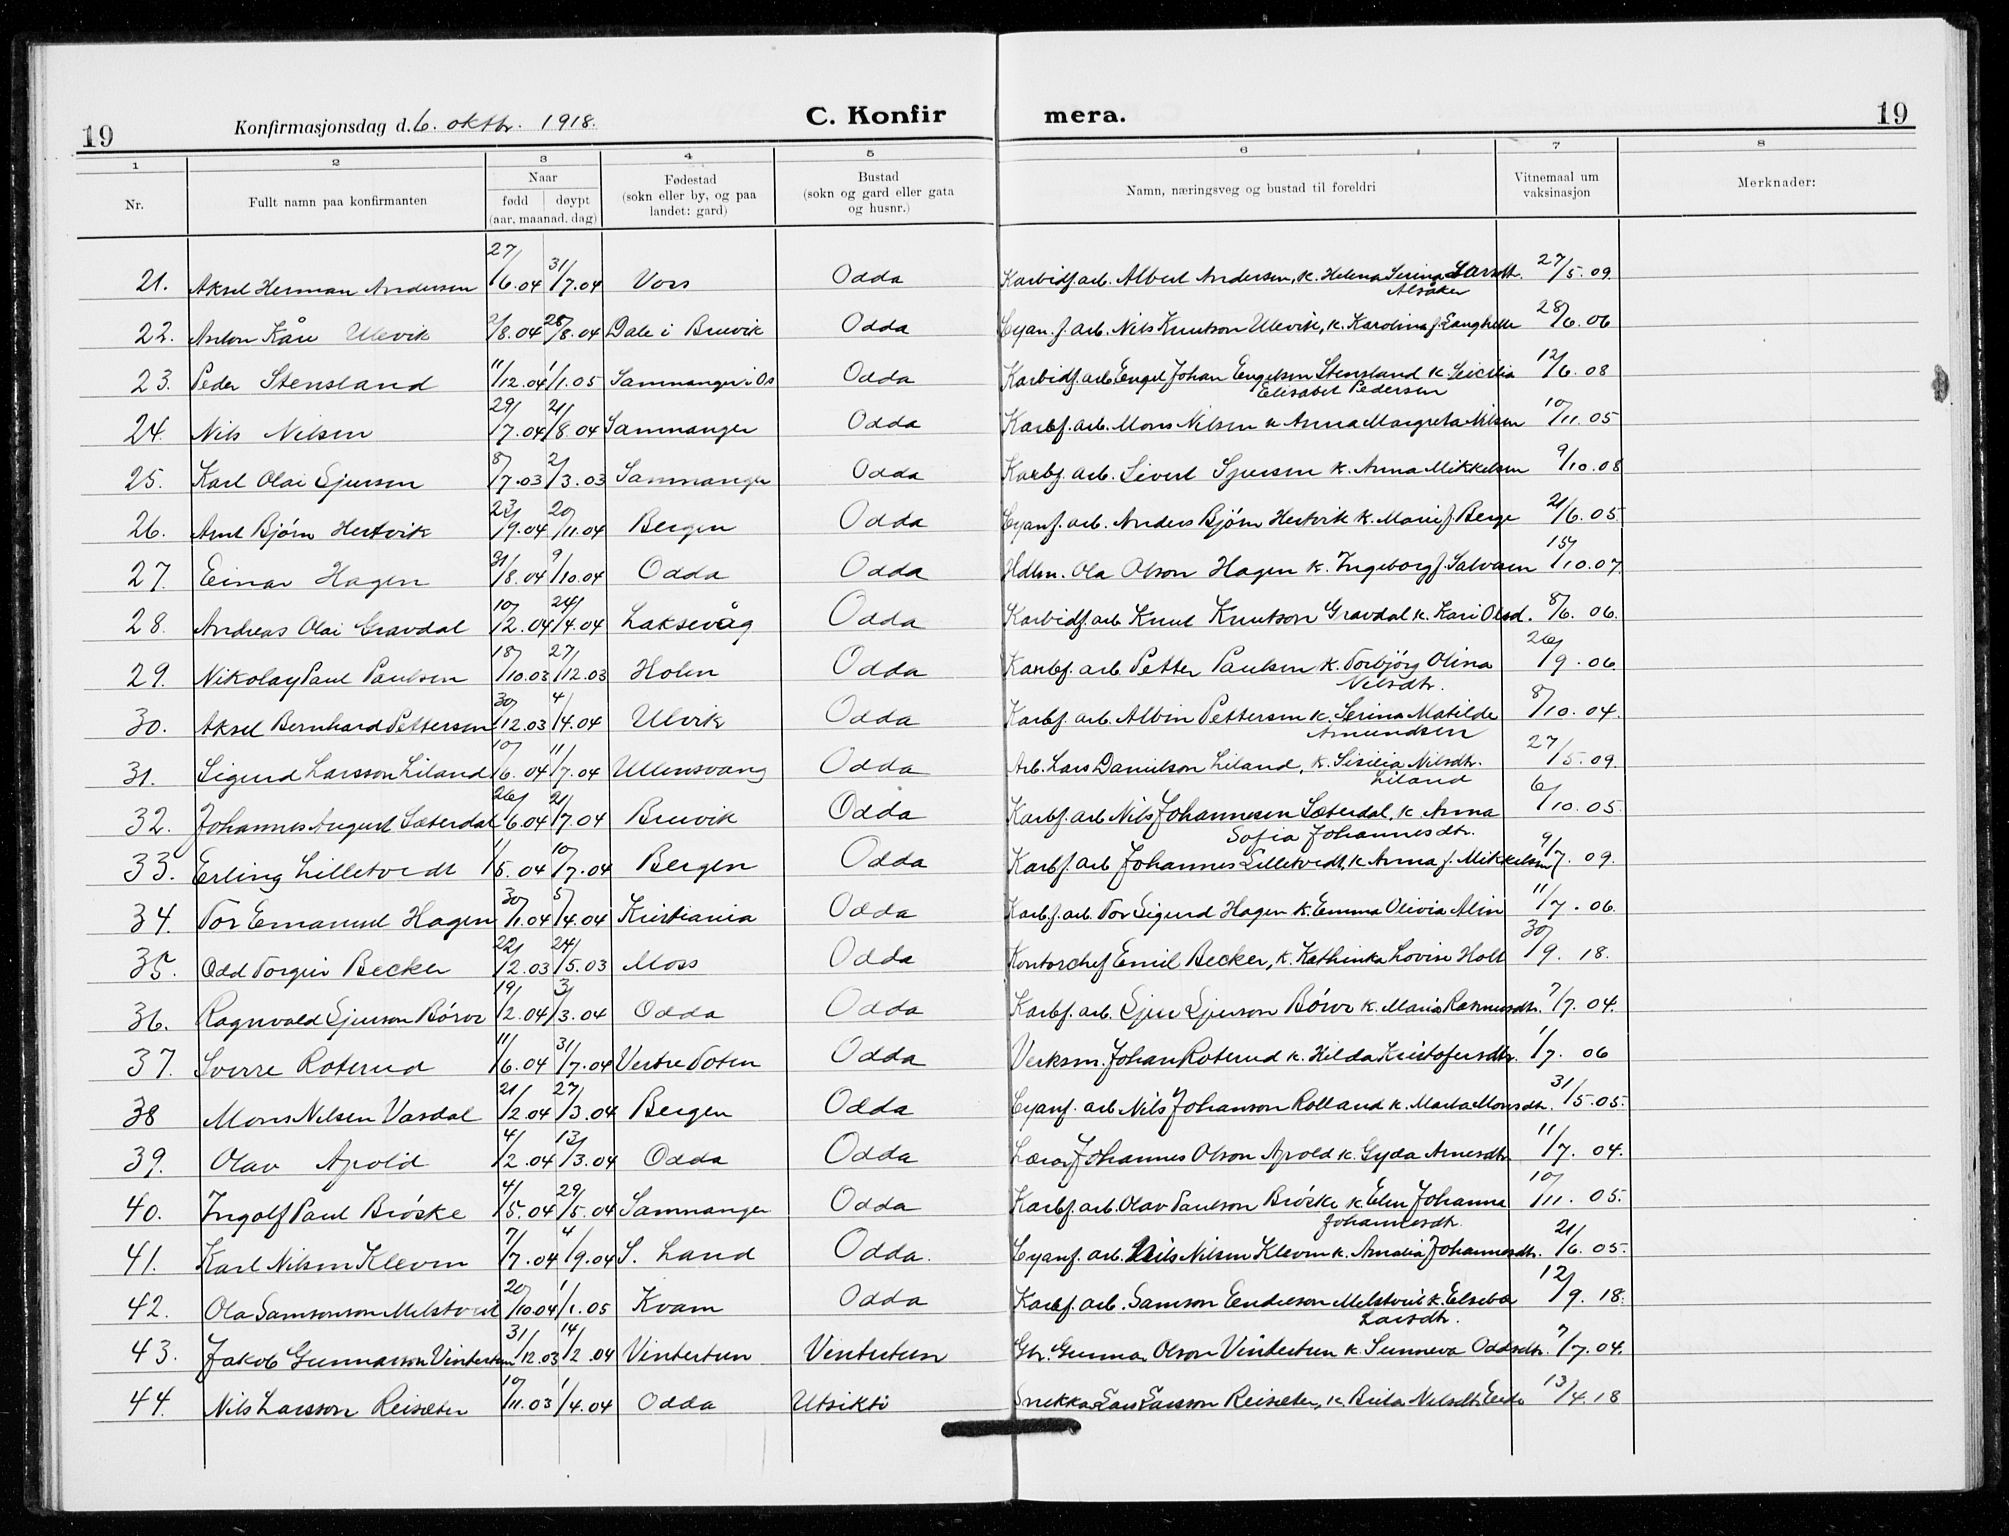 19 Konfirmasjonsdag d. 6. oktbr. 1918. C. Konfir mera. 19
1 2 3 4 5 6 7 8
Nr. Fullt namn paa konfirmanten Naar fødd døypt (aar. maanad. dag) Fødestad (sokn eller by, og paa landet: gard) Bustad (sokn og gard eller gata og husnr.) Namn, næringsveg og bustad til foreldri Vitnemaal um vaksinasjon Merknader:
21. Aksel Herman Andersen 27/6.04 31/7.04 Voss Odda Karbidf. arb. Albert Andersen, k. Helena Serina Larsdtr. 27/5.09
Alsåker
22. Anton Kåre Ulevik 2/8.04 28/8.04 Dale i Bruvik Odda Cyan.f. arb. Nils Knutson Ulevik, k. Karolina f. Langhelle 28/6.06
23. Peder Stensland 11/12.04 1/1.05 Samnanger i Os Odda Karbidf. arb. Engel Johan Engelsen Stensland k. Seicilia 12/6.08
Elisabet Pedersen
24. Nils Nilsen 29/7.04 21/8.04 Samnanger Odda Karbf. arb. Mons Nilsen k Anna Margreta Nilsen 10/11.05
25. Karl Olai Sjursen 8/7.03 2/3.03 Samnanger Odda Karbf. arb. Sivert Sjursen k. Anna Mikkelsen 9/10.08
26. Arne Bjørn Hertvik 23/9.04 20/11.04 Bergen Odda Cyanf. arb. Anders Bjørn Hertvik k. Marie f. Berge 21/6.05
27. Einar Hagen 31/8.04 9/10.04 Odda Odda Hdlm. Ola Olson Hagen k. Ingeborg f. Salvesen 15/10.07
28. Andreas Olai Gravdal 10/2.04 24/4.04 Laksevåg Odda Karbidf. arb. Knut Knutson Gravdal k. Kari Olsd. 8/6.06.
29. Nikolay Paul Paulsen 18/10.03 27/12.03 Holm Odda Karbf. arb. Petter Paulsen k. Torbjörg Olina 26/9.06
Nilsdtr.
30. Aksel Bernhard Pettersen 30/12.03 4/4.04 Ulvik Odda Karbf. arb. Albin Pettersen k. Serina Matilde 8/10.04.
Amundsen
31. Sigurd Larsson Liland 10/6.04 11/7.04 Ullensvang Odda Arb. Lars Danielson Liland, k. Sisilia Nilsdtr. 27/5.09.
Liland
32. Johannes August Sæterdal 26/6.04 21/7.04 Bruvik Odda Karbf. arb Nils Johannesen Sæterdal, k Anna 6/10.05
Sofia Johannesdtr.
33. Erling Lilletvedt 1/5.04 10/7.04 Bergen Odda Karbf. arb Johannes Lilletvedt, k Anna f. Mikkelsen 9/7.09.
34. Tor Emanuel Hagen 30/1.04 5/4.04 Kristiania Odda Karb.f. arb. Tor Sigurd Hagen k. Emma Olivia Alin 11/7.06.
35. Odd Torgeir Becker 22/2.03 24/5.03 Moss Odda Kontorchef Emil Becker, k. Kathinka Lovise Holt 30/9.18.
36. Ragnvald Sjurson Börve 19/2.04 3/3.04 Odda Odda Karbf. arb. Sjur Sjurson Börve k. Maria Rasmusdtr. 7/7.04.
37. Sverre Roterud 11/6.04 31/7.04 Vestre Toten Odda Verksm. Johan Roterud k. Hilda Kristofersdtr. 1/7.06
38 Mons Nilsen Vasdal 21/2.04 27/3.04 Bergen Odda Cyanf. arb Nils Johanson Rolland k. Marta Monsdtr. 31/5.05.
39. Olav Apold 4/2.04 13/3.04 Odda Odda Lærar Johannes Olson Apold k. Gyda Arnesdtr 11/7.04.
40. Ingolf Paul Bröske 4/5.04 29/5.04 Samnanger Odda Karbf. arb. Olav Paulson Bröske k. Elen Johanna 10/11.05.
Johannesdtr.
41. Karl Nilsen Kleven 7/7.04 4/9.04 S. Land Odda. Cyanf. arb. Nils Nilsen Kleven k. Amalia Johannesdtr. 21/6.05.
42. Ola Samsonson Melstveit 20/10.04 1/1.05 Kvam Odda Karbf. arb. Samson Endreson Melstveit k. Elseba 12/9.18.
Larsdtr.
43. Jakob Gunnarson Vintertun 31/12.03 14/2.04 Vintertun Vintertun Gbr. Gunnar Olson Vintertun k. Sunneva Oddsdtr. 7/7.04.
44. Nils Larsson Reisæter 10/11.03 1/4.04 Odda Utsikti Snekkar Lars Larsson Reisæter, k. Brita Nilsdtr. 13/4.18